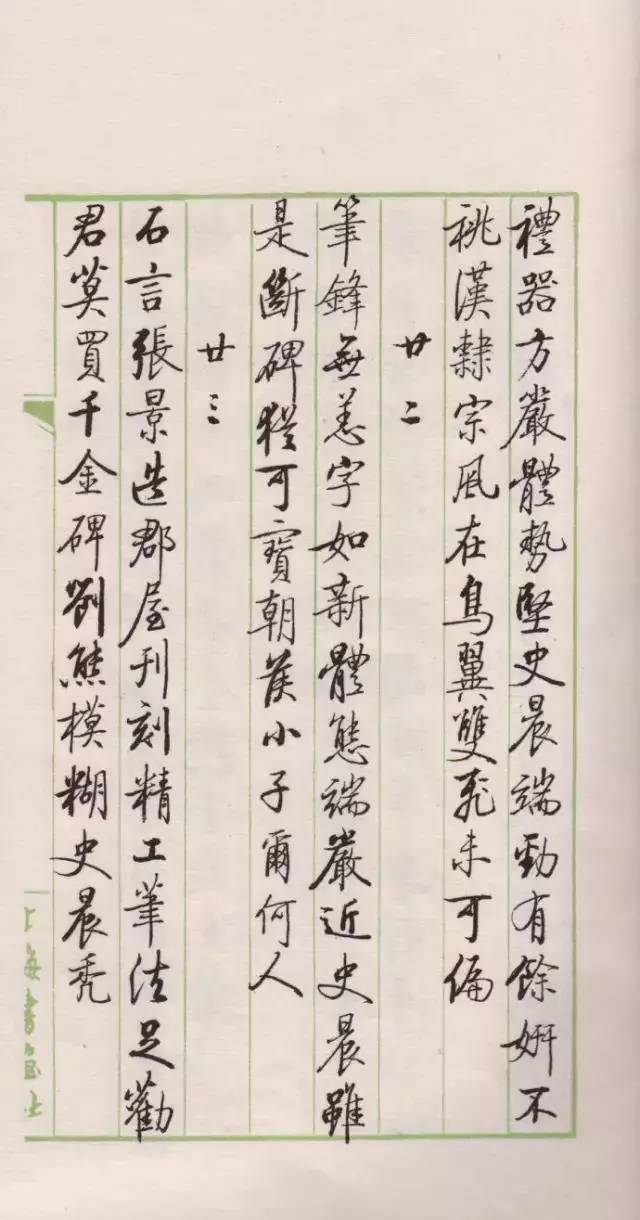 禮器方嚴體勢堅史晨端勁有餘妍不
祧漢隸宗風在鳥翼雙飛未可偏
廿二
筆鋒無恙字如新體態端嚴近史晨雖
是斷碑猶可寶朝侯小子爾何人
廿三
石言張景造郡屋刊刻精工筆法足勸
君莫買千金碑劉熊模糊史晨禿
上海書畫社